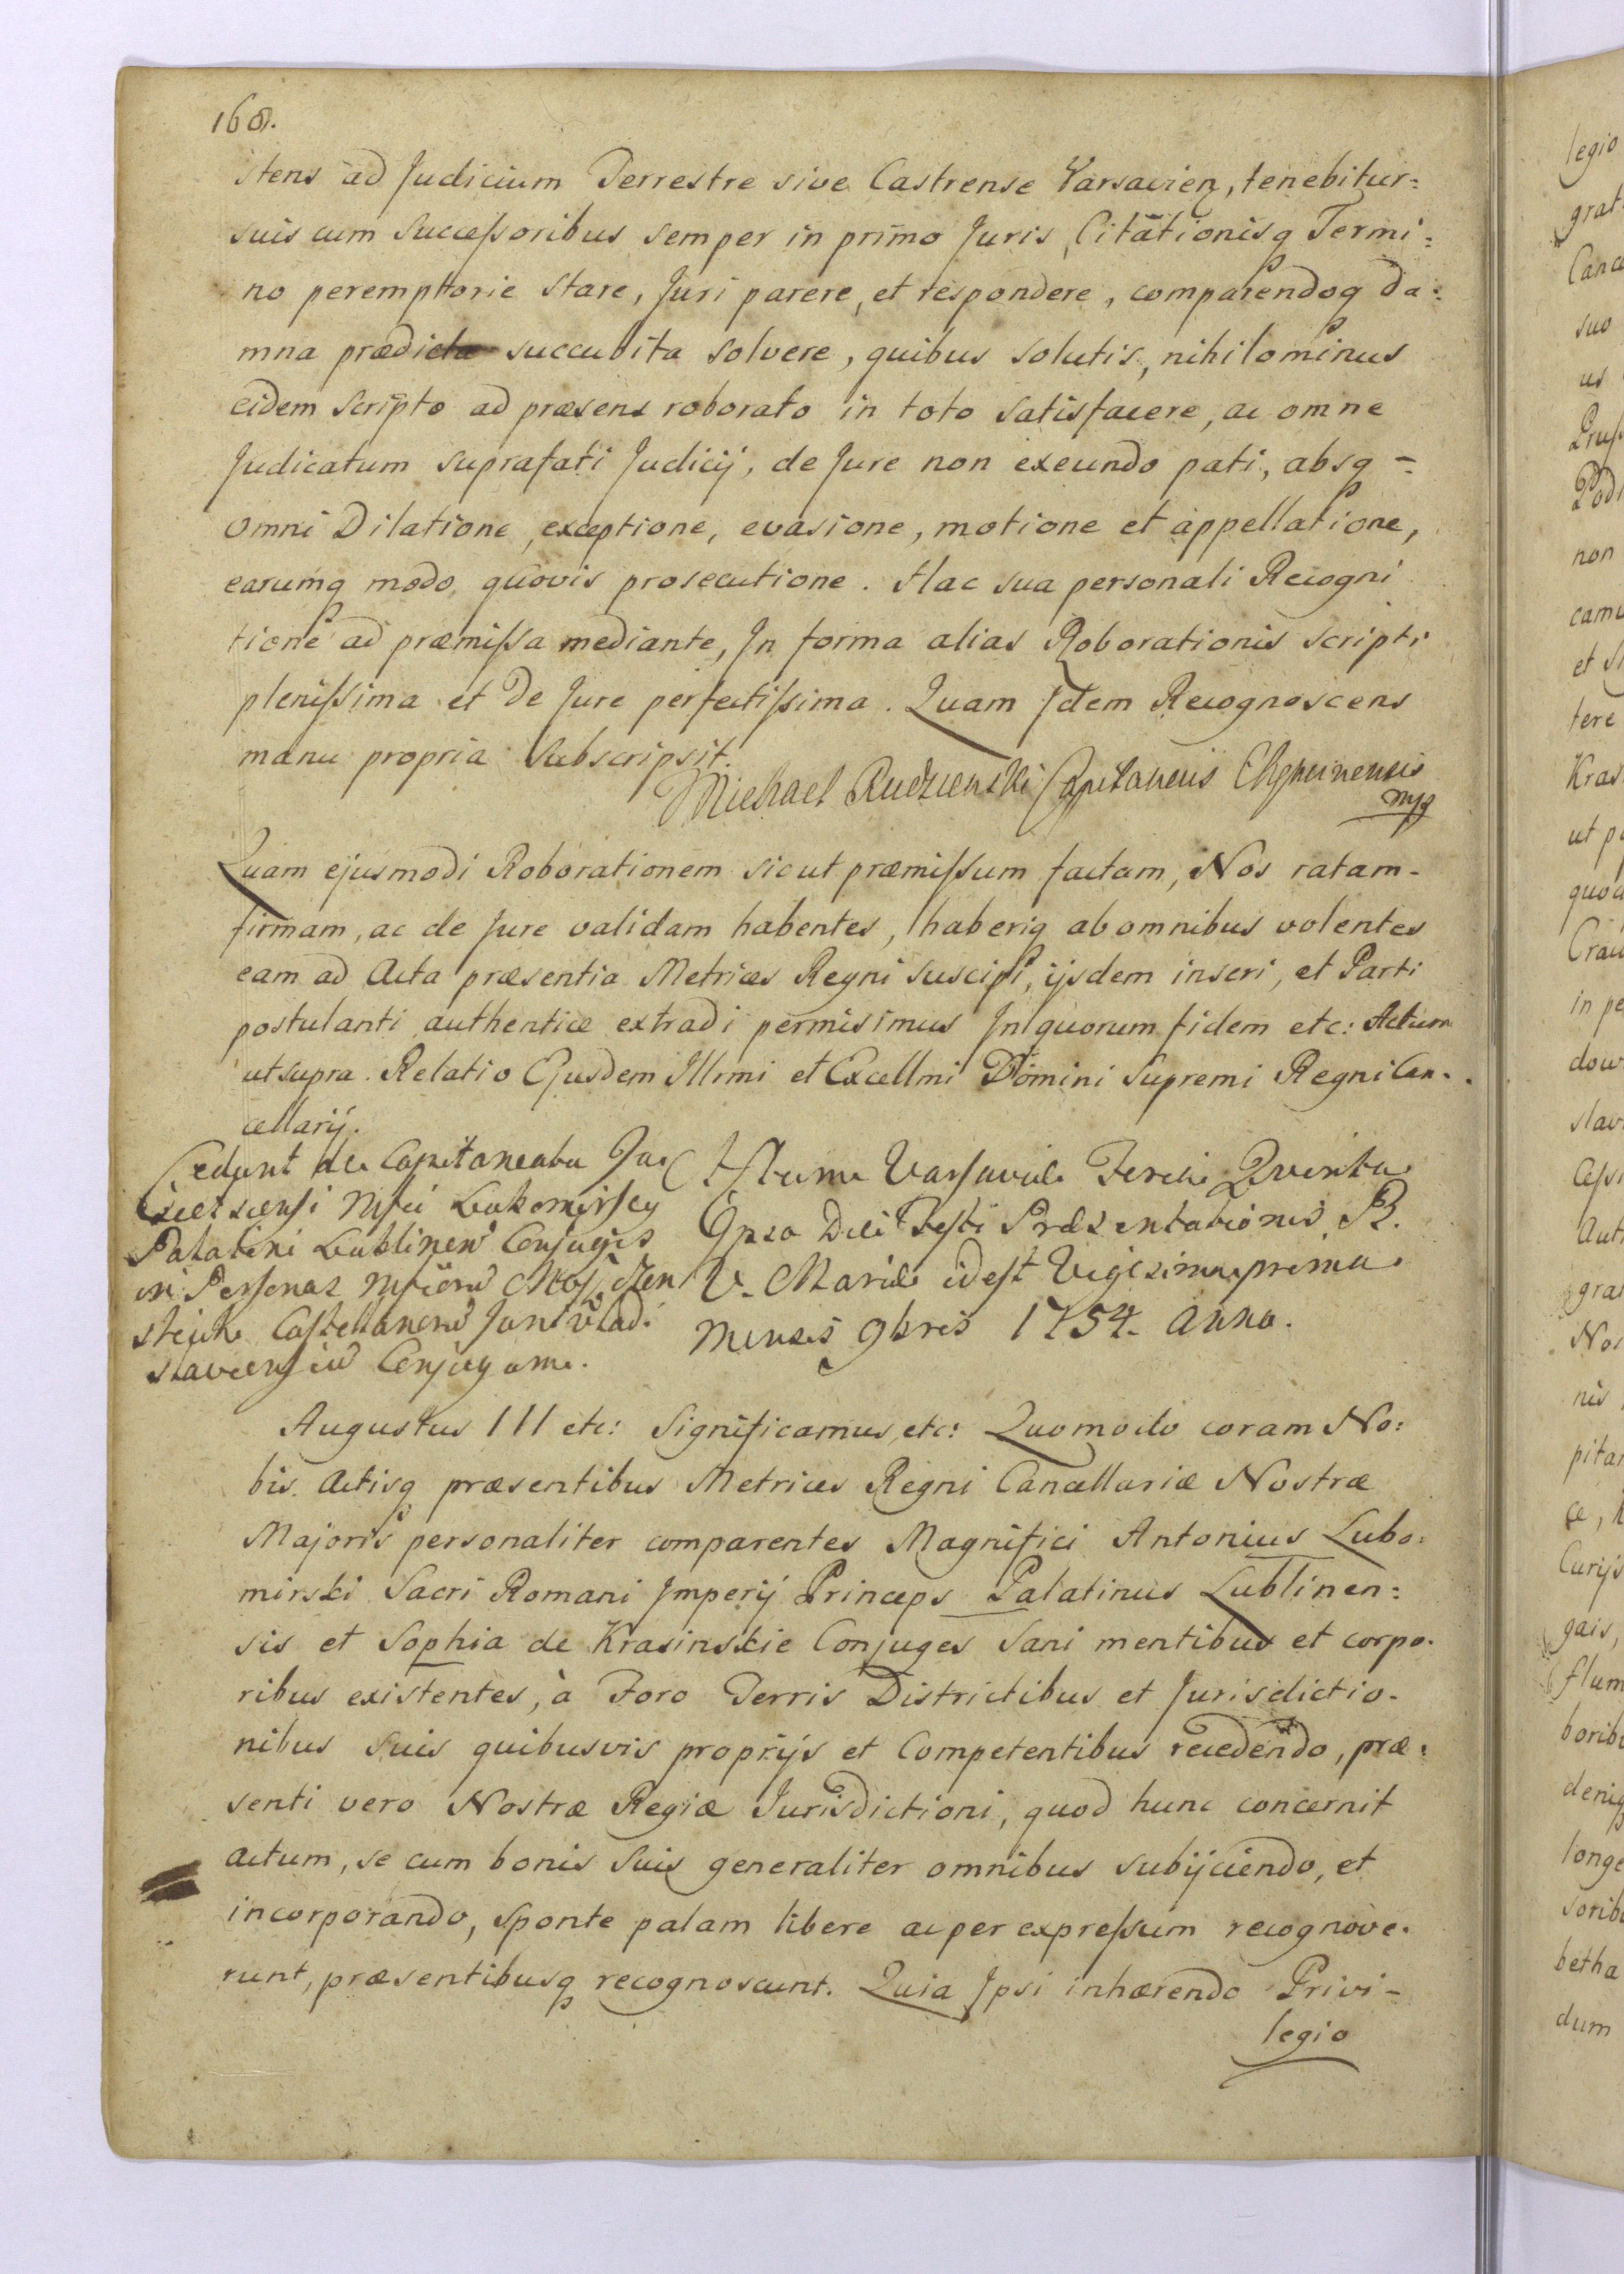 168.
stens ad Judicium Terrestre sive Castrense Varsavien, tenebitur=
suis cum Successoribus semper in primo Juris, Citationisq Termi=
no peremptorie stare, Juri parere, et respondere, comparendoq da=
mna prædicta succubita solvere, quibus solutis, nihilominus
eidem Scripto ad præsens roborato in toto satisfacere, ac omne
Judicatum suprafati Judicij, de Jure non exeundo pati, absq -
omni Dilatione, exceptione, evasione, motione et appellatione,
earumq modo quovis prosecutione. Hac sua personali Recogni
tione ad præmissa mediante, In forma alias Roborationis Scripti
plenissima et De Jure perfectissima. Quam Idem Recognoscens
manu propria Subscripsit.
Michael Rudzienski Capitaneus
mpp
Quam ejusmodi Roborationem sicut præmissum factam, Nos ratam-
firmam, ac de Jure validam habentes, haberiq ab omnibus volentes
eam ad Acta præsentia Metrices Regni suscipi, ijsdem inseri, et Parti
postulanti authentice extradi permisimus In quorum fidem etc: Actum
ut supra. Relatio Ejusdem Illrmi et Excellmi Domini Supremi Regni Can-
cellarij.
Cedunt de Capitaneatu
Mfci
Palatini Lublinen Conjuges
in Personas
Castellanoru
Conjugum.
Actum Varsaviæ Feria Quinta
Ipso Die Festi Præsentationis B.
V. Mariæ id est Vigesima prima
Mensis 9bris 1754. Anno.
Augustus III etc: Significamus, etc: Quomodo coram No=
bis Actisq præsentibus Metrices Regni Cancellariæ Nostræ
Majoris personaliter comparentes Magnifici Antonius Lubo=
mirski Sacri Romani Imperij Princeps Palatinus Lublinen=
sis et Sophia de Krasinskie Conjuges Sani mentibus et corpo-
ribus existentes, à Foro Terris Districtibus et Jurisdictio-
nibus suis quibusvis proprijs et Competentibus recedendo, præ=
senti vero Nostræ Regiæ Jurisdictioni, quod hunc concernit
actum, se cum bonis suis generaliter omnibus subijciendo, et
incorporando, sponte palam libere ac per expressum recognove-
runt, præsentibusq recognoscunt. Quia Ipsi inhærendo Privi-
legio